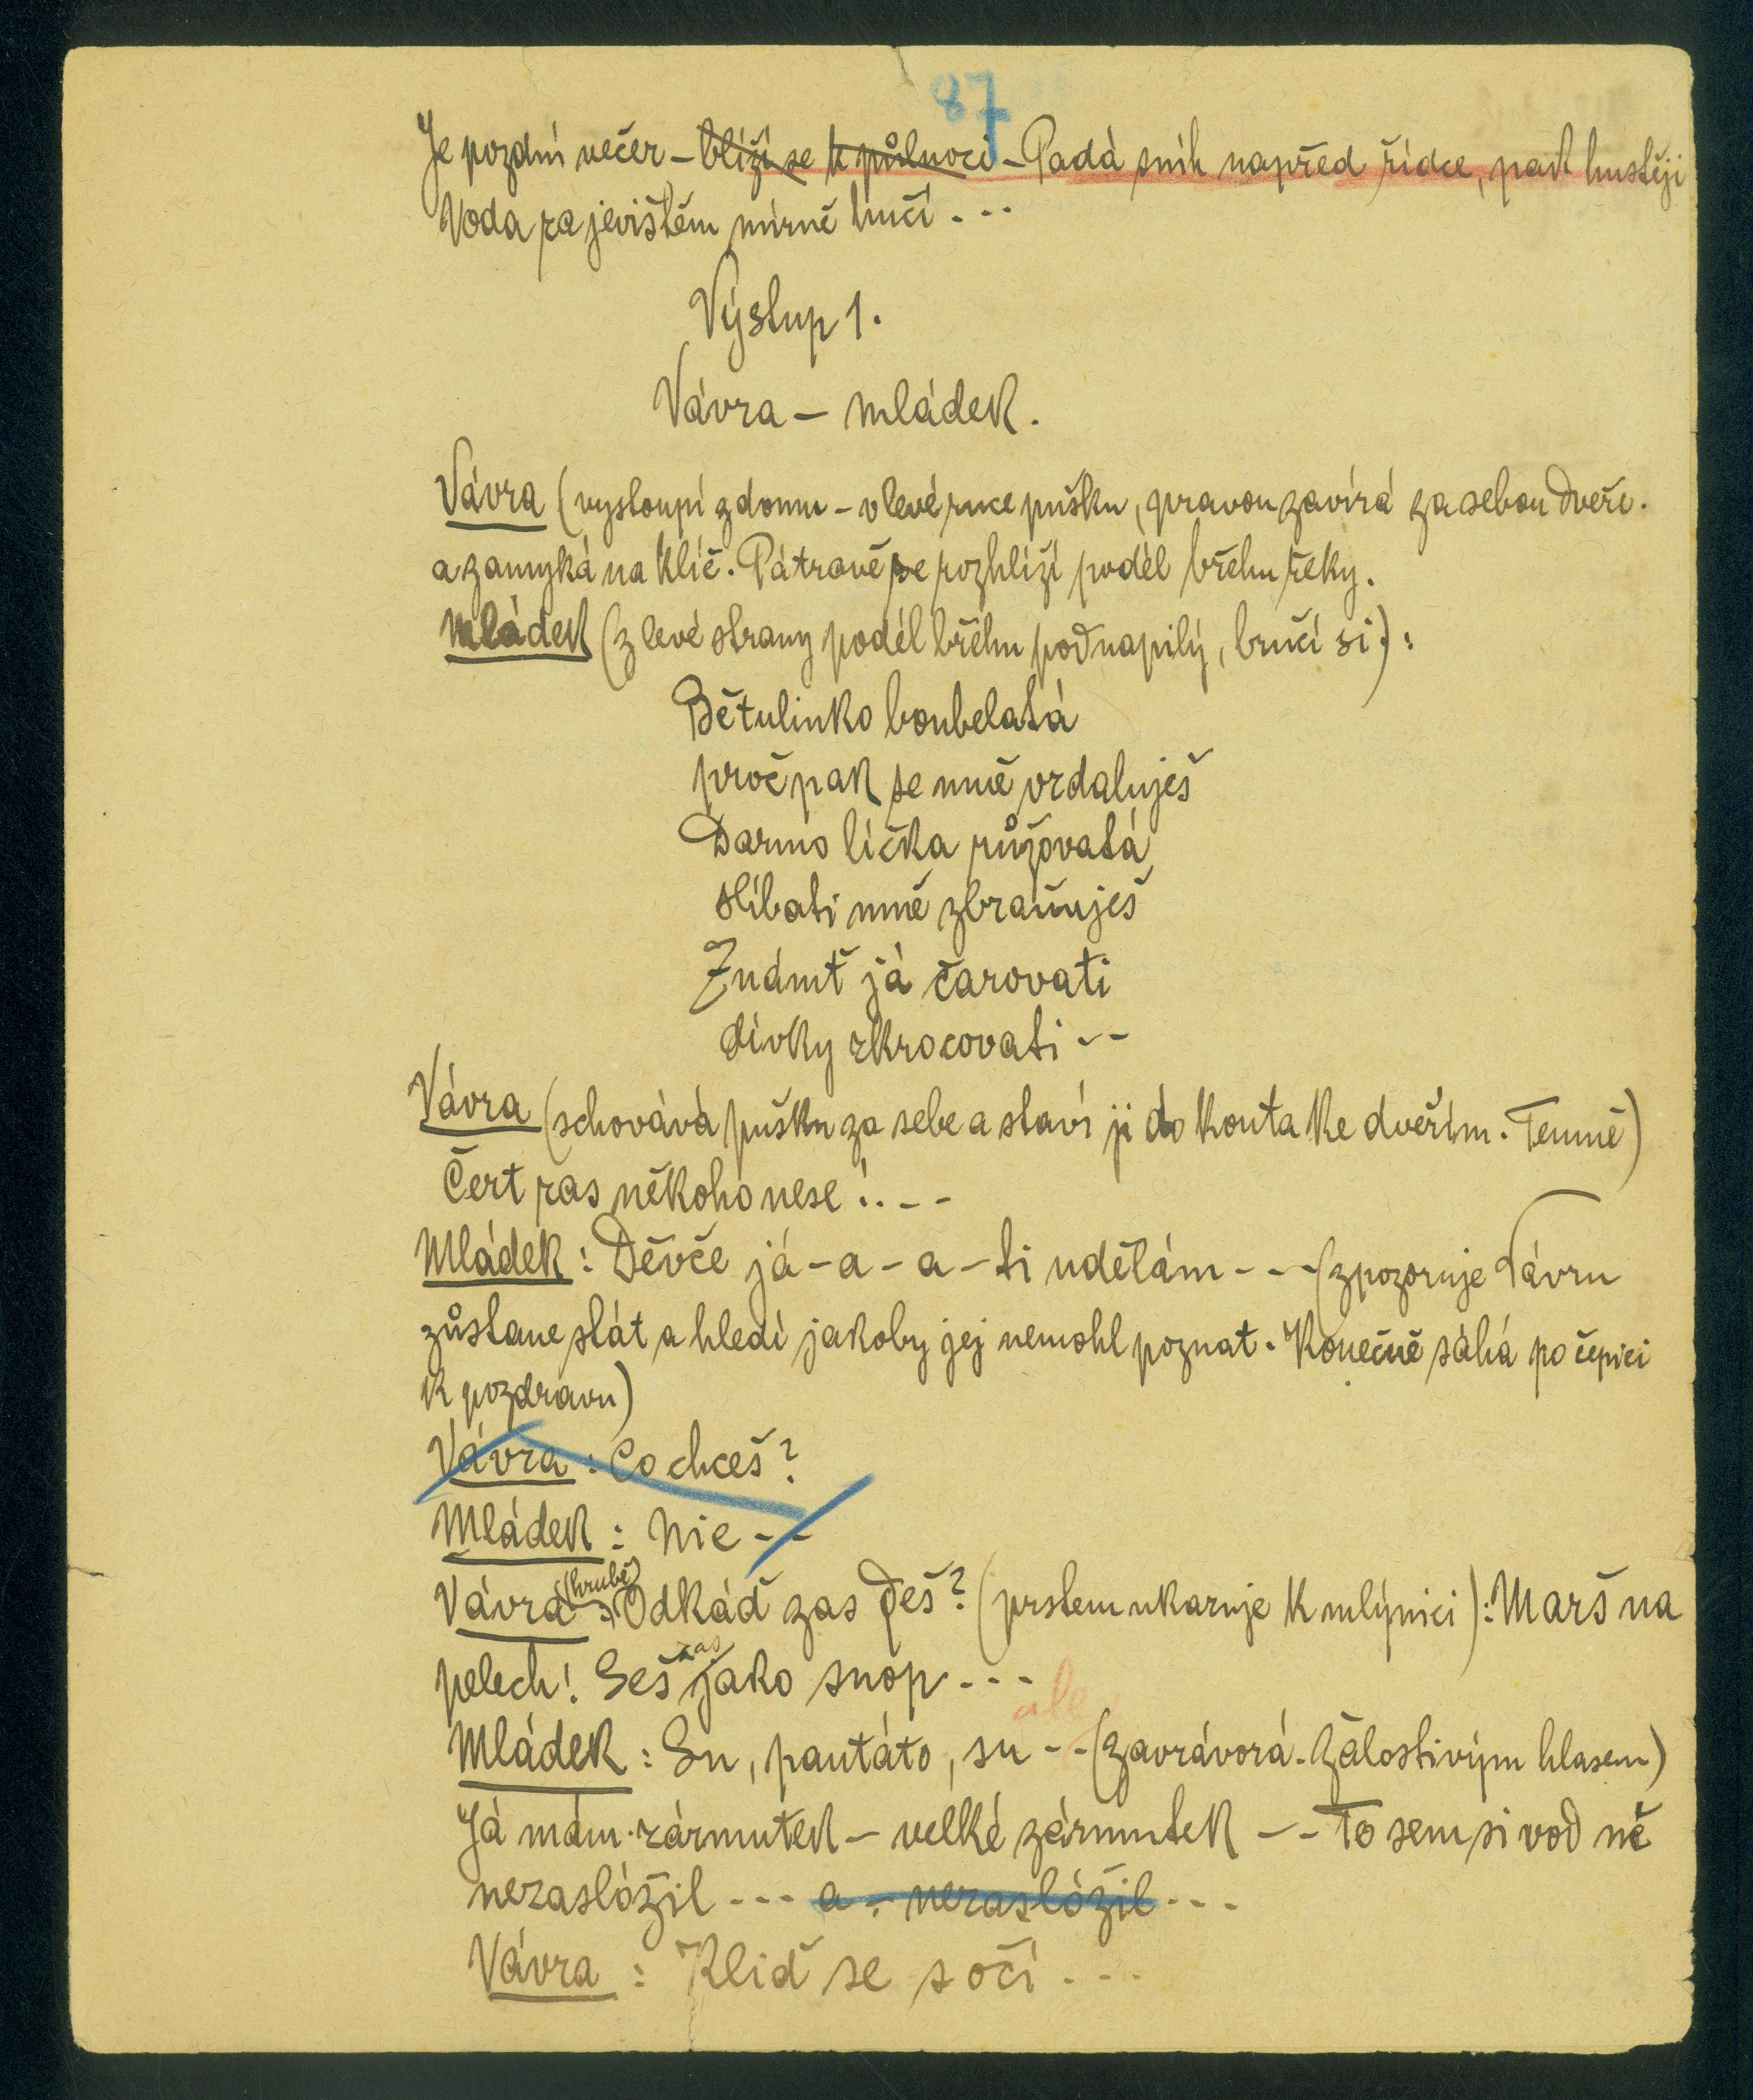 87
Je pozdní večer – blíží se k půlnoci – Padá sníh napřed řídce, pak hustěji
Voda za jevištěm mírně hučí . - -
Výstup 1.
Vávra – Mládek.
Vávra (vystoupí z domu – v levé ruce pušku, pravou zavírá za sebou dveře.
a zamyká na klíč. Pátravě se rozhlíží podél břehu řeky.
Mládek (z levé strany podél břehu podnapilý, bručí si) :
Bětulinko boubelatá
pročpak se mně vzdaluješ
Darmo líčka růžovatá
slíbati mně zbraňuješ
Známť já čarovati
dívky zkrocovati - -
Vávra (schovává pušku za sebe a staví ji do kouta ke dveřím. Temně)
Čert zas někoho nese ! . . - -
Mládek : Děvče já – a – a – ti udělám - - - (zpozoruje Vávru
zůstane stát a hledí jakoby jej nemohl poznat. Konečně sáhá po čepici
k pozdravu)
Vávra : Co chceš ?
Mládek : Nic - -
Vávra (hrubě) : Odkáď zas deš ? (prstem ukazuje k mlýnici) : Marš na
pelech ! Seš zas jako snop - - -
Mládek : Su, pantáto, su ale - - (zavrávorá. Žalostivým hlasem)
Já mám zármutek – velké zármutek - - To sem si vod ně
nezaslóžil - - - a - nezaslóžil - - -
Vávra : Kliď se s očí . - -